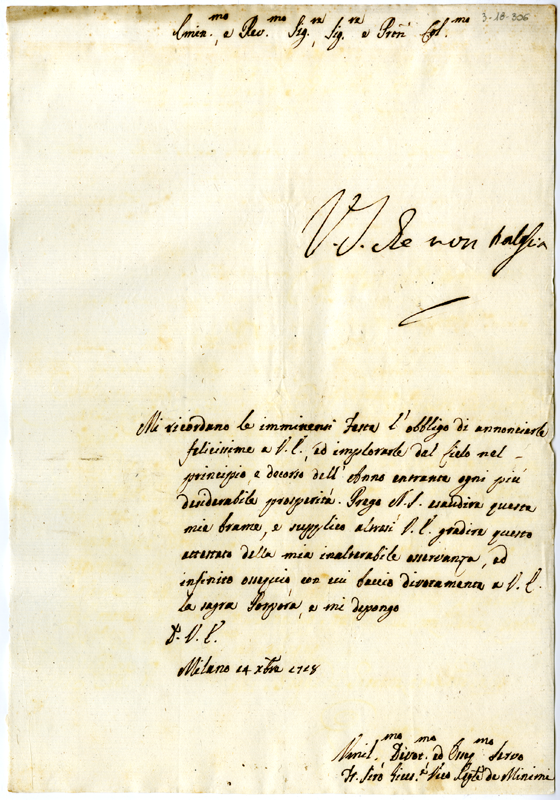 3-18-306
Emin.mo, e Rev.mo Sig.r, Sig.r e Pron Col.mo
V. S. che non
Mi ricordano le imminenti Feste l'obbligo di annonciarle
felicissime a V. E., ed implorarle del Cielo nel
principio, e decorso dell'Anno entrante ogni più
desiderabile prosperità. Prego N. S. esaudire queste
mie brame, e supplico altresì V. E. gradire questo
attestato della mia inalterabile osservanza, ed
infinito ossequio con cui baccio divotamente a V. E.
la sagra Porpora, e mi depongo
D. V. E.
Milano 14 xbre 1718
Umil.mo Divot.mo ed Obbg.mo Servo
Fr. de Minimi